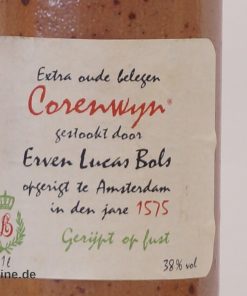 Extra oude belegen
Corenwyn®
gestookt door
Erven Lucas Bols
opgerigt te Amsterdam
in den jare 1575
Gerijpt op fust
38% vol